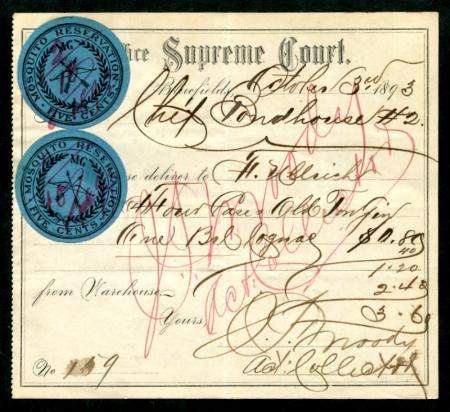 MOSQUITO RESERVATION
MC
FIVE CENTS
MOSQUITO RESERVATION
MC
FIVE CENTS
ice Supreme Court.
Bluefields, October 3rd 1893
Bondhouse #2.
se deliver to F. Ullrich
Four Cases Old Tom Gin
One Bbl Cognac $0.80
40
1.20
2.40
from Warehouse 3.60
Yours,
J. F. Moody
Act. Collector
No 159
J. F. Moody
Act. Collector